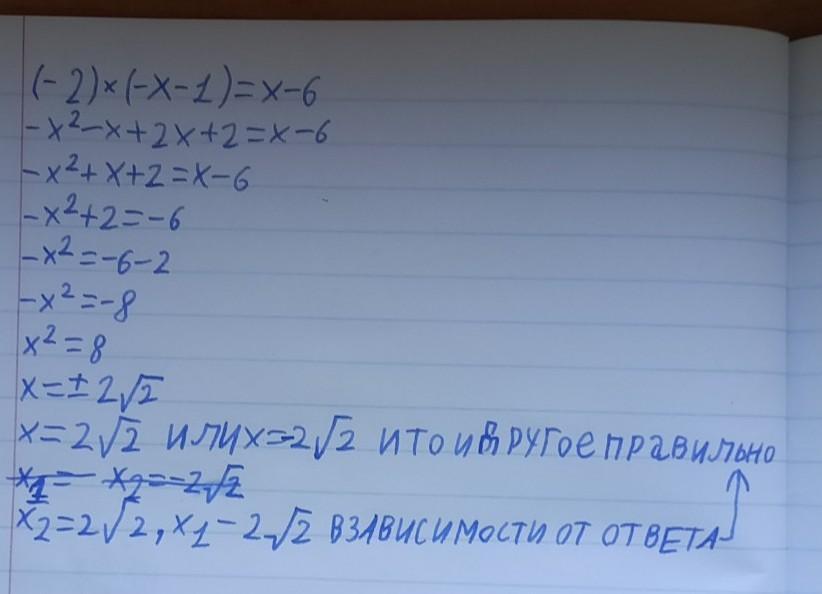 (-2)×(-x-1)=x-6
-x²-x+2x+2=x-6
-x²+x+2=x-6
-x²+2=-6
-x²=-6-2
-x²=-8
x²=8
x=±2√2
x=2√2 или x=-2√2 и то и другое правильно
x₁= x₂=-2√2
x₂=2√2, x₁-2√2 в зависимости от ответа